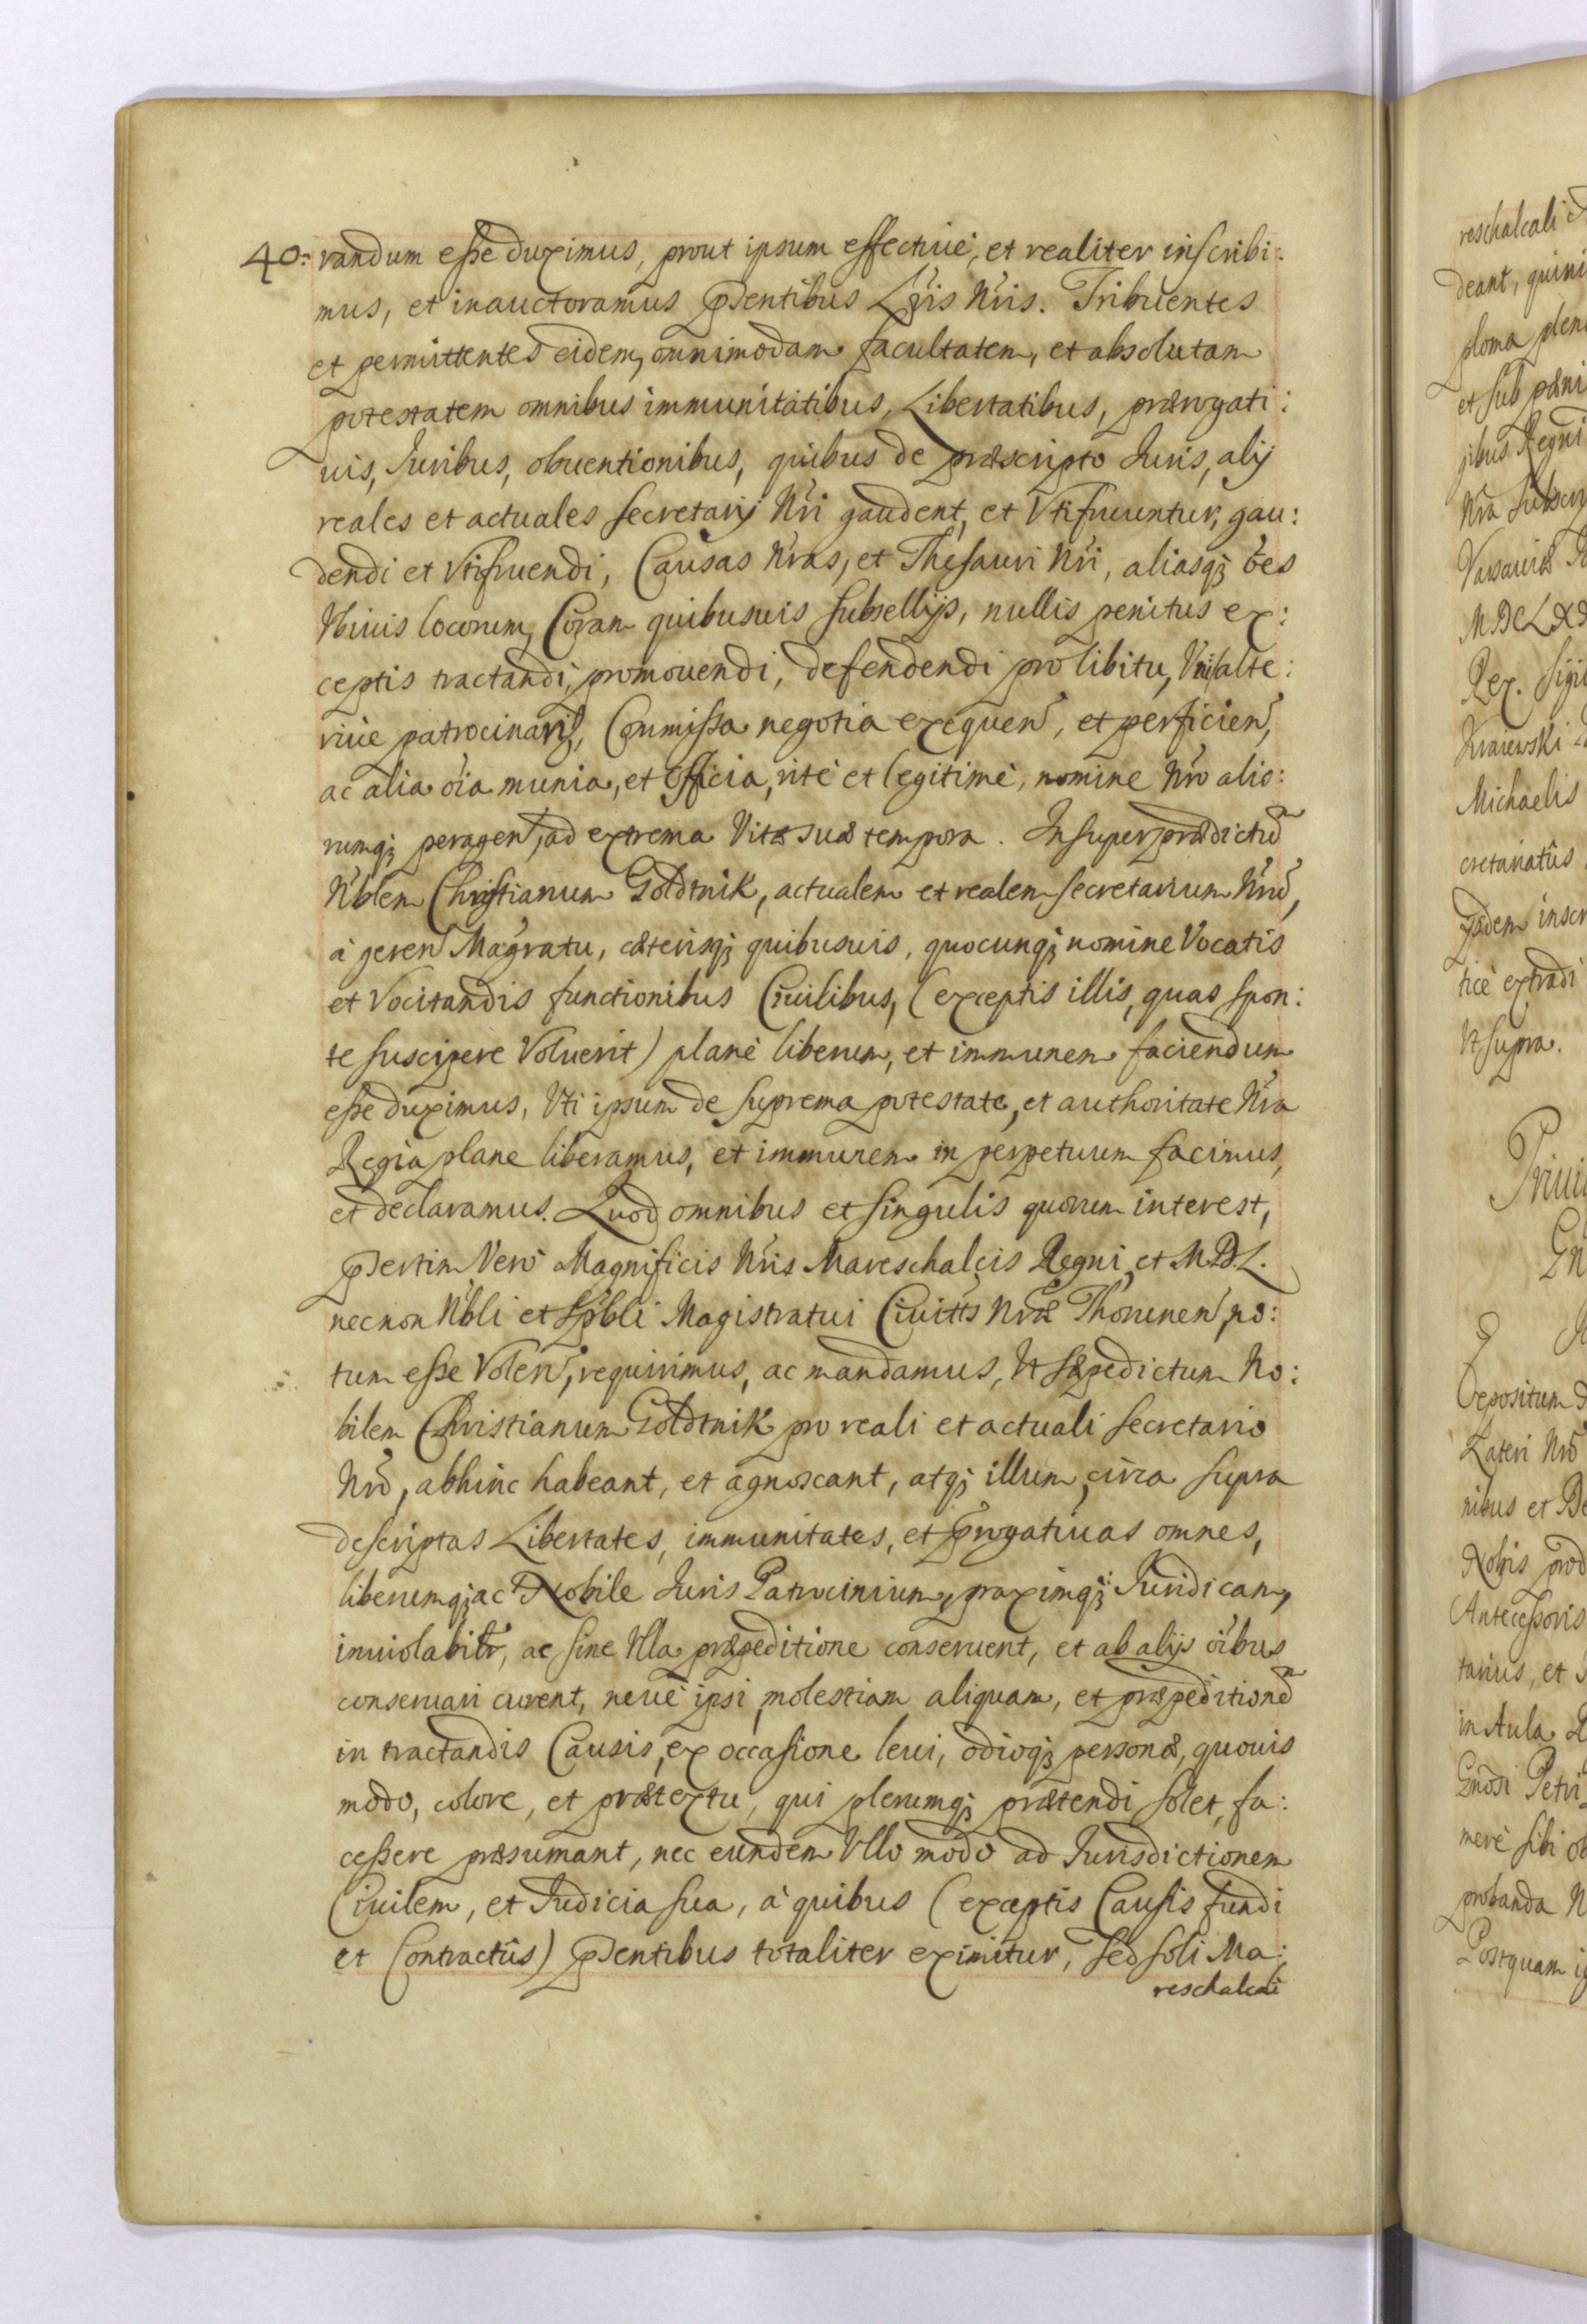 40: randum esse duximus, prout ipsum effectiuè, et realiter inscribi:
mus, et inauctoramus pñtibus Lr̃is Nr̃is. Tribuentes
et permittentes eidem, omnimodam facultatem, et absolutam
potestatem omnibus immunitatibus, Libertatibus, prærogati:
uis, Iuribus, obuentionibus, quibus de præscripto Iuris, alij
reales et actuales secretarij Nr̃i gaudent, et Vtifruuntur, gau:
dendi et Vtifruendi, Causas Nr̃as, et Thesauri Nr̃i, aliasq; ões
Vbiuis locorum, Coram quibusuis subsellijs, nullis penitus ex:
ceptis tractandi, promouendi, defendendi pro libitu, alte:
riue patrocinan̄, Commissa negotia exequen̄, et perficien̄,
ac alia õia munia, et Officia, ritè et legitimè, nomine Nr̃o alio:
rumq; peragen̄, ad extrema Vitæ suæ tempora. Insuper prædictũ
N̄blem Christianum Goldtnik, actualem et realem secretarium Nr̃ũ,
à geren̄ Magr̃atu, cæterisq; quibusuis, quocunq; nomine Vocatis
et Vocitandis functionibus Ciuilibus, (exceptis illis, quas spon:
te suscipere Voluerit) planè liberum, et immunem faciendum
esse duximus, Vti ipsum de suprema potestate, et authoritate Nr̃a
Regia plane liberamus, et immunem in perpetuum facimus,
et declaramus. Quod omnibus et singulis quorum interest,
p̃sertim Verò Magnificis Nr̃is Mareschalcis Regni, et M.D.L.
necnon N̄bli et Sp̃bli Magistratui Ciuitt̃s Nr̃æ Thorunen̄, no:
tum esse Volen̄, requirimus, ac mandamus, Vt sæpedictum No:
bilem Christianum Goldtnik pro reali et actuali secretario
Nr̃o, abhinc habeant, et agnoscant, atq; illum, circa supra
descriptas Libertates, immunitates, et p̃rogatiuas omnes,
liberumq; ac Nobile Iuris Patrocinium, praximq; Iuridicam,
inuiolabilr̃, ac sine Vlla præpeditione conseruent, et ab alijs õibus
conseruari curent, neuè ipsi, molestiam aliquam, et præpeditionẽ
in tractandis Causis, ex occasione leui, odioq; personæ, quouis
modo, colore, et prætextu, qui plerumq; prætendi solet, fa:
cessere præsumant, nec eundem Vllo modo ad Iurisdictionem
Ciuilem, et Iudicia sua, à quibus (exceptis Causis fundi
et Contractûs) pñtibus totaliter eximitur, sed soli Ma:
reschalcali
reschalcali
deant, quini
ploma plen
et sub pæni
gibus Regni
Nr̃a subscr
Varsauiæ
Rex. Sigi
Kraiewski
Michaelis
cretariatûs
insen
ticè extradi
Vt supra.
Priui
Depositum
Lateri Nr̃o
nibus et
Nobis prod
Antecessoris
tarius, et
in Aula
Gñosi Petri
merè sibi
probanda N
Postquam